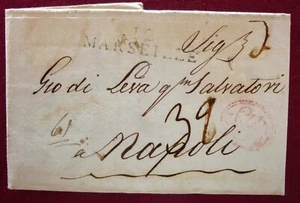 MARSEILLE
Sig
Gio di Leva qm Salvatori
39
a Napoli